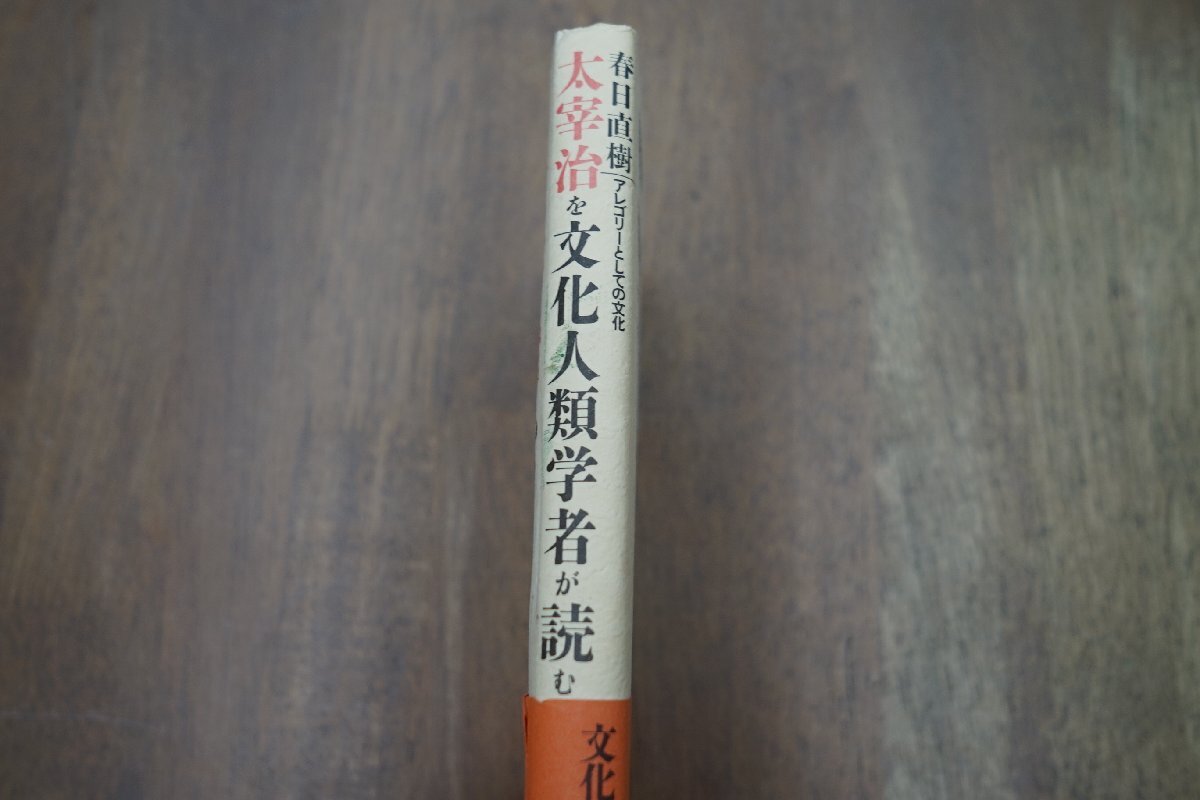 春日直樹
アレゴリーとしての文化
太宰治を文化人類学者が読む
文化